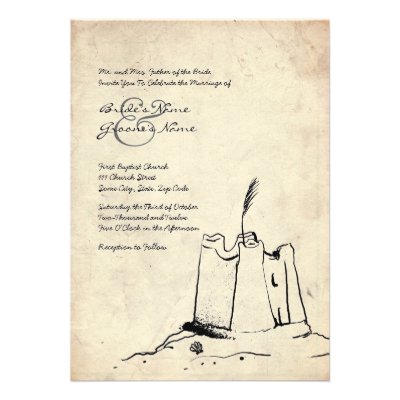 Mr. and Mrs. Father of the Bride
Invite You To Celebrate the Marriage of
Bride's Name
&
Groom's Name
First Baptist Church
111 Church Street
Some City, State, Zip Code
Saturday the Third of October
Two-Thousand and Twelve
Five O'Clock in the Afternoon
Reception to Follow